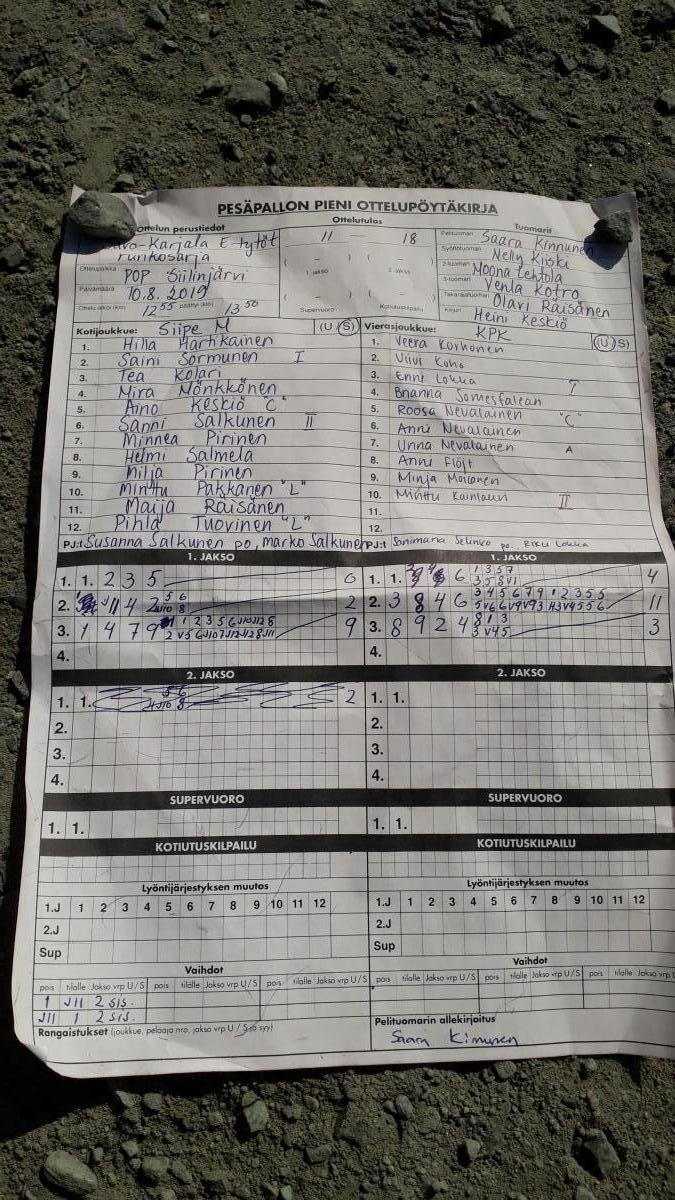 PESÄPALLON PIENI OTTELUPÖYTÄKIRJA
Ottelun perustiedot
Ottelutulos
Tuomarit
-Karjala E-tytöt
runkosarja
Ottelupaikka POP Siilinjärvi
Päivämäärä 10.8.2019
Ottelu alkoi (klo) 12 55 päättyi (klo) 13 50
11 — 18
( – )
1. jakso
2. jakso
Supervuoro
Kotiutuskilpailu
Pelituomari Saara Kinnunen
Syöttötuomari Nelly
2-tuomari Noona Lehtola
3-tuomari Venla Kotro
Takarajatuomari Olavi Räisänen
Kirjuri Heini Keskiö
Kotijoukkue: Siipe M (U/S)
1. Hilla Hartikainen
2. Saini Sormunen I
3. Tea Kolari
4. Mira Mönkkönen
5. Aino Keskiö "C"
6. Sanni Salkunen II
7. Minnea Pirinen
8. Helmi Salmela
9. Milja Pirinen
10. Minttu Pakkanen "L"
11. Maija Räisänen
12. Pihla Tuovinen "L"
PJ:t Susanna Salkunen po, marko Salkunen
Vierasjoukkue: KPK (U/S)
1. Veera Korhonen
2. Viivi Koho
3. Enni Lokka I
4. Brianna Somesfalean
5. Roosa Nevalainen "C"
6. Anni Nevalainen
7. Unna Nevalainen A
8. Anni
9. Minja
10. Minttu II
11.
12.
PJ:t po. Riku Lokka
1. JAKSO
1. 1. 2 3 5 0
2. J11 4 2 2
3. 1 4 7 9 9
4.
2. JAKSO
1. 1. 2
2.
3.
4.
SUPERVUORO
1. 1.
KOTIUTUSKILPAILU
Lyöntijärjestyksen muutos
1.J 1 2 3 4 5 6 7 8 9 10 11 12
2.J
Sup
Vaihdot
pois tilalle Jakso vrp U/S pois tilalle Jakso vrp U/S pois tilalle Jakso vrp U/S
1 J11 2 sis.
J11 1 2 sis.
Rangaistukset (joukkue, pelaaja nro, jakso vrp U/S ja syy)
1. JAKSO
1. 1. 6 1 3 5 7 4
2. 3 8 4 6 11
3. 8 9 2 4 8 1 3 3
4.
2. JAKSO
1. 1.
2.
3.
4.
SUPERVUORO
1. 1.
KOTIUTUSKILPAILU
Lyöntijärjestyksen muutos
1.J 1 2 3 4 5 6 7 8 9 10 11 12
2.J
Sup
Vaihdot
pois tilalle Jakso vrp U/S pois tilalle Jakso vrp U/S pois tilalle Jakso vrp U/S
Pelituomarin allekirjoitus
Saara Kinnunen